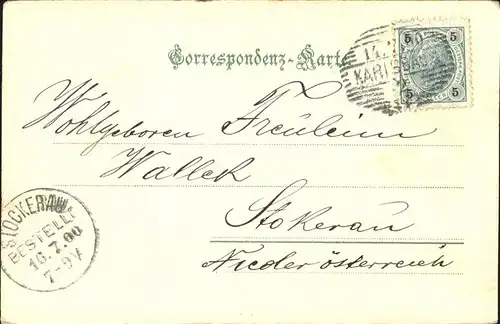 Correspondenz-Karte
14.7.00
KARLSBAD
5 5
5 5
Wohlgeboren Fräulein
Wallek
Stokerau
Niederösterreich
STOCKERAU
BESTELLT
16.7.00
7-9V